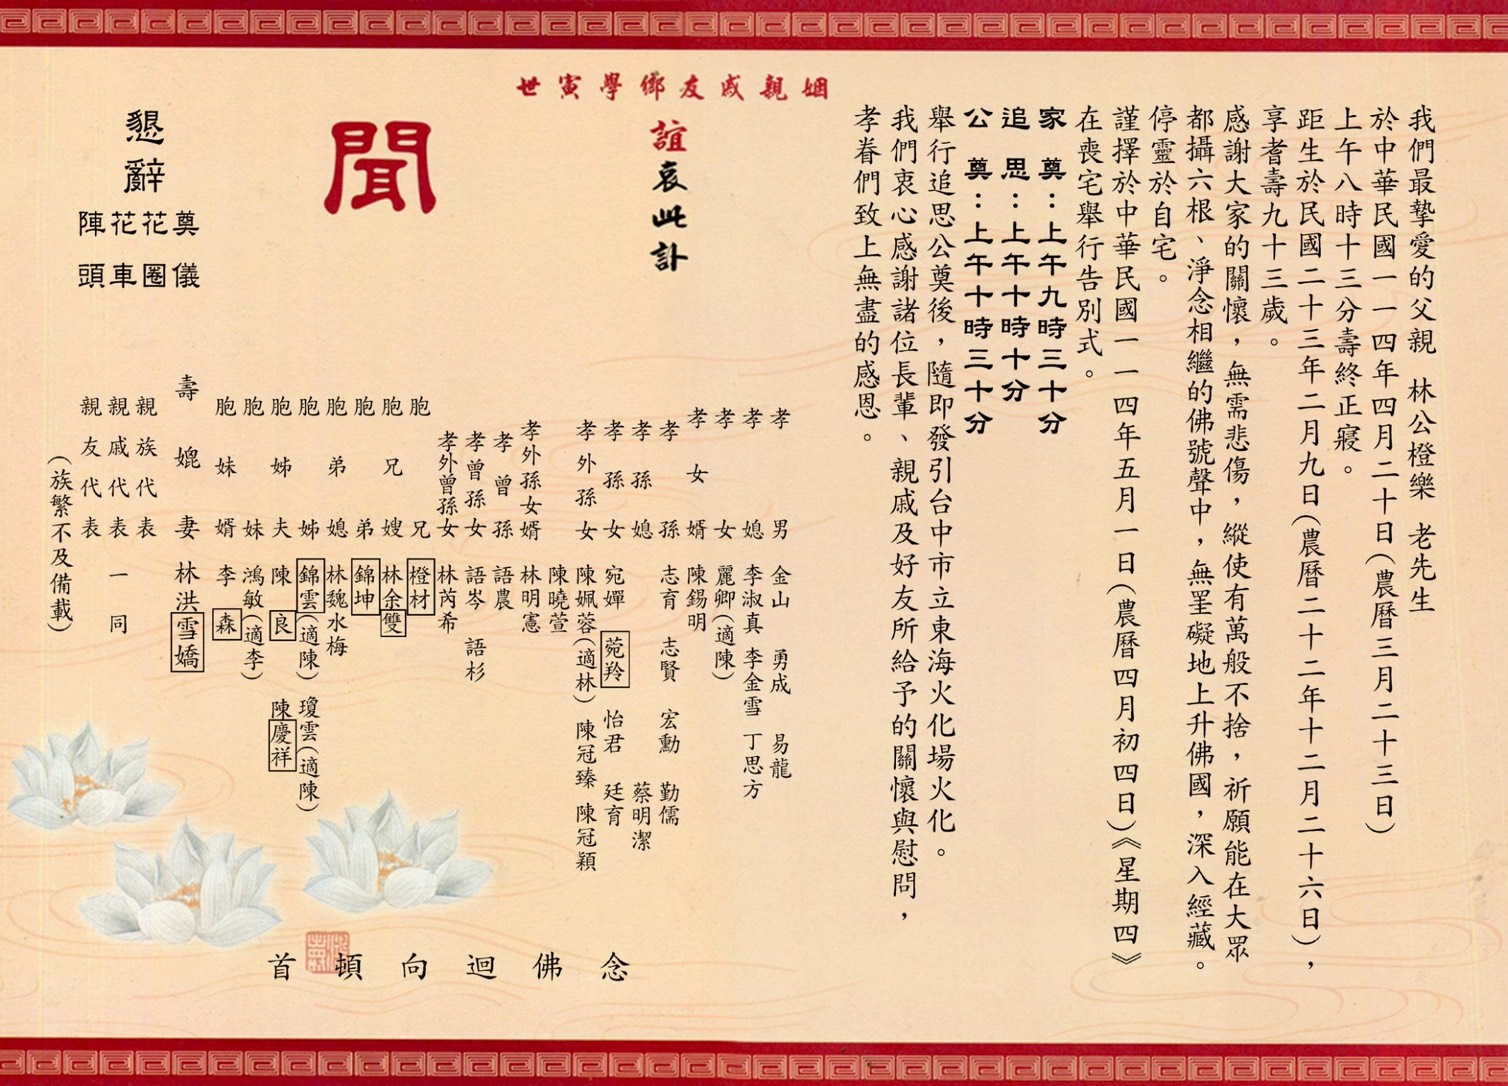 我們最摯愛的父親 林公橙樂 老先生
於中華民國一一四年四月二十日(農曆三月二十三日)
上午八時十三分壽終正寢。
距生於民國二十三年二月九日(農曆二十二年十二月二十六日),
享耆壽九十三歲。
感謝大家的關懷,無需悲傷,縱使有萬般不捨,祈願能在大眾
都攝六根、淨念相繼的佛號聲中,無罣礙地上升佛國,深入經藏。
停靈於自宅。
謹擇於中華民國一一四年五月一日(農曆四月初四日)《星期四》
在喪宅舉行告別式。
家 奠:上午九時三十分
追 思:上午十時十分
公 奠:上午十時三十分
舉行追思公奠後,隨即發引台中市立東海火化場火化。
我們衷心感謝諸位長輩、親戚及好友所給予的關懷與慰問,
孝眷們致上無盡的感恩。
姻親戚友鄉學寅世
誼哀此訃
聞
懇辭
奠儀
花圈
花車
陣頭
孝男 金山 勇成 易龍
孝媳 李淑真 李金雪 丁思方
孝女 麗卿(適陳)
孝女婿 陳錫明
孝孫 志育 志賢 宏勳 勤儒
孝孫媳 蔡明潔
孝孫女 宛嬋 菀羚 怡君 廷育
孝外孫女 陳姵蓉(適林) 陳冠臻 陳冠穎
陳曉萱
孝外孫女婿 林明憲
孝曾孫 語農
孝曾孫女 語岑 語杉
孝外曾孫女 林芮希
胞兄 橙材
胞兄嫂 林余雙
胞弟 錦坤
胞弟媳 林魏水梅
胞姊 錦雲(適陳) 瓊雲(適陳)
胞姊夫 陳良 陳慶祥
胞妹 鴻敏(適李)
胞妹婿 李森
壽媲妻 林洪雪嬌
親族代表
親戚代表 一同
親友代表
(族繁不及備載)
念佛迴向頓首